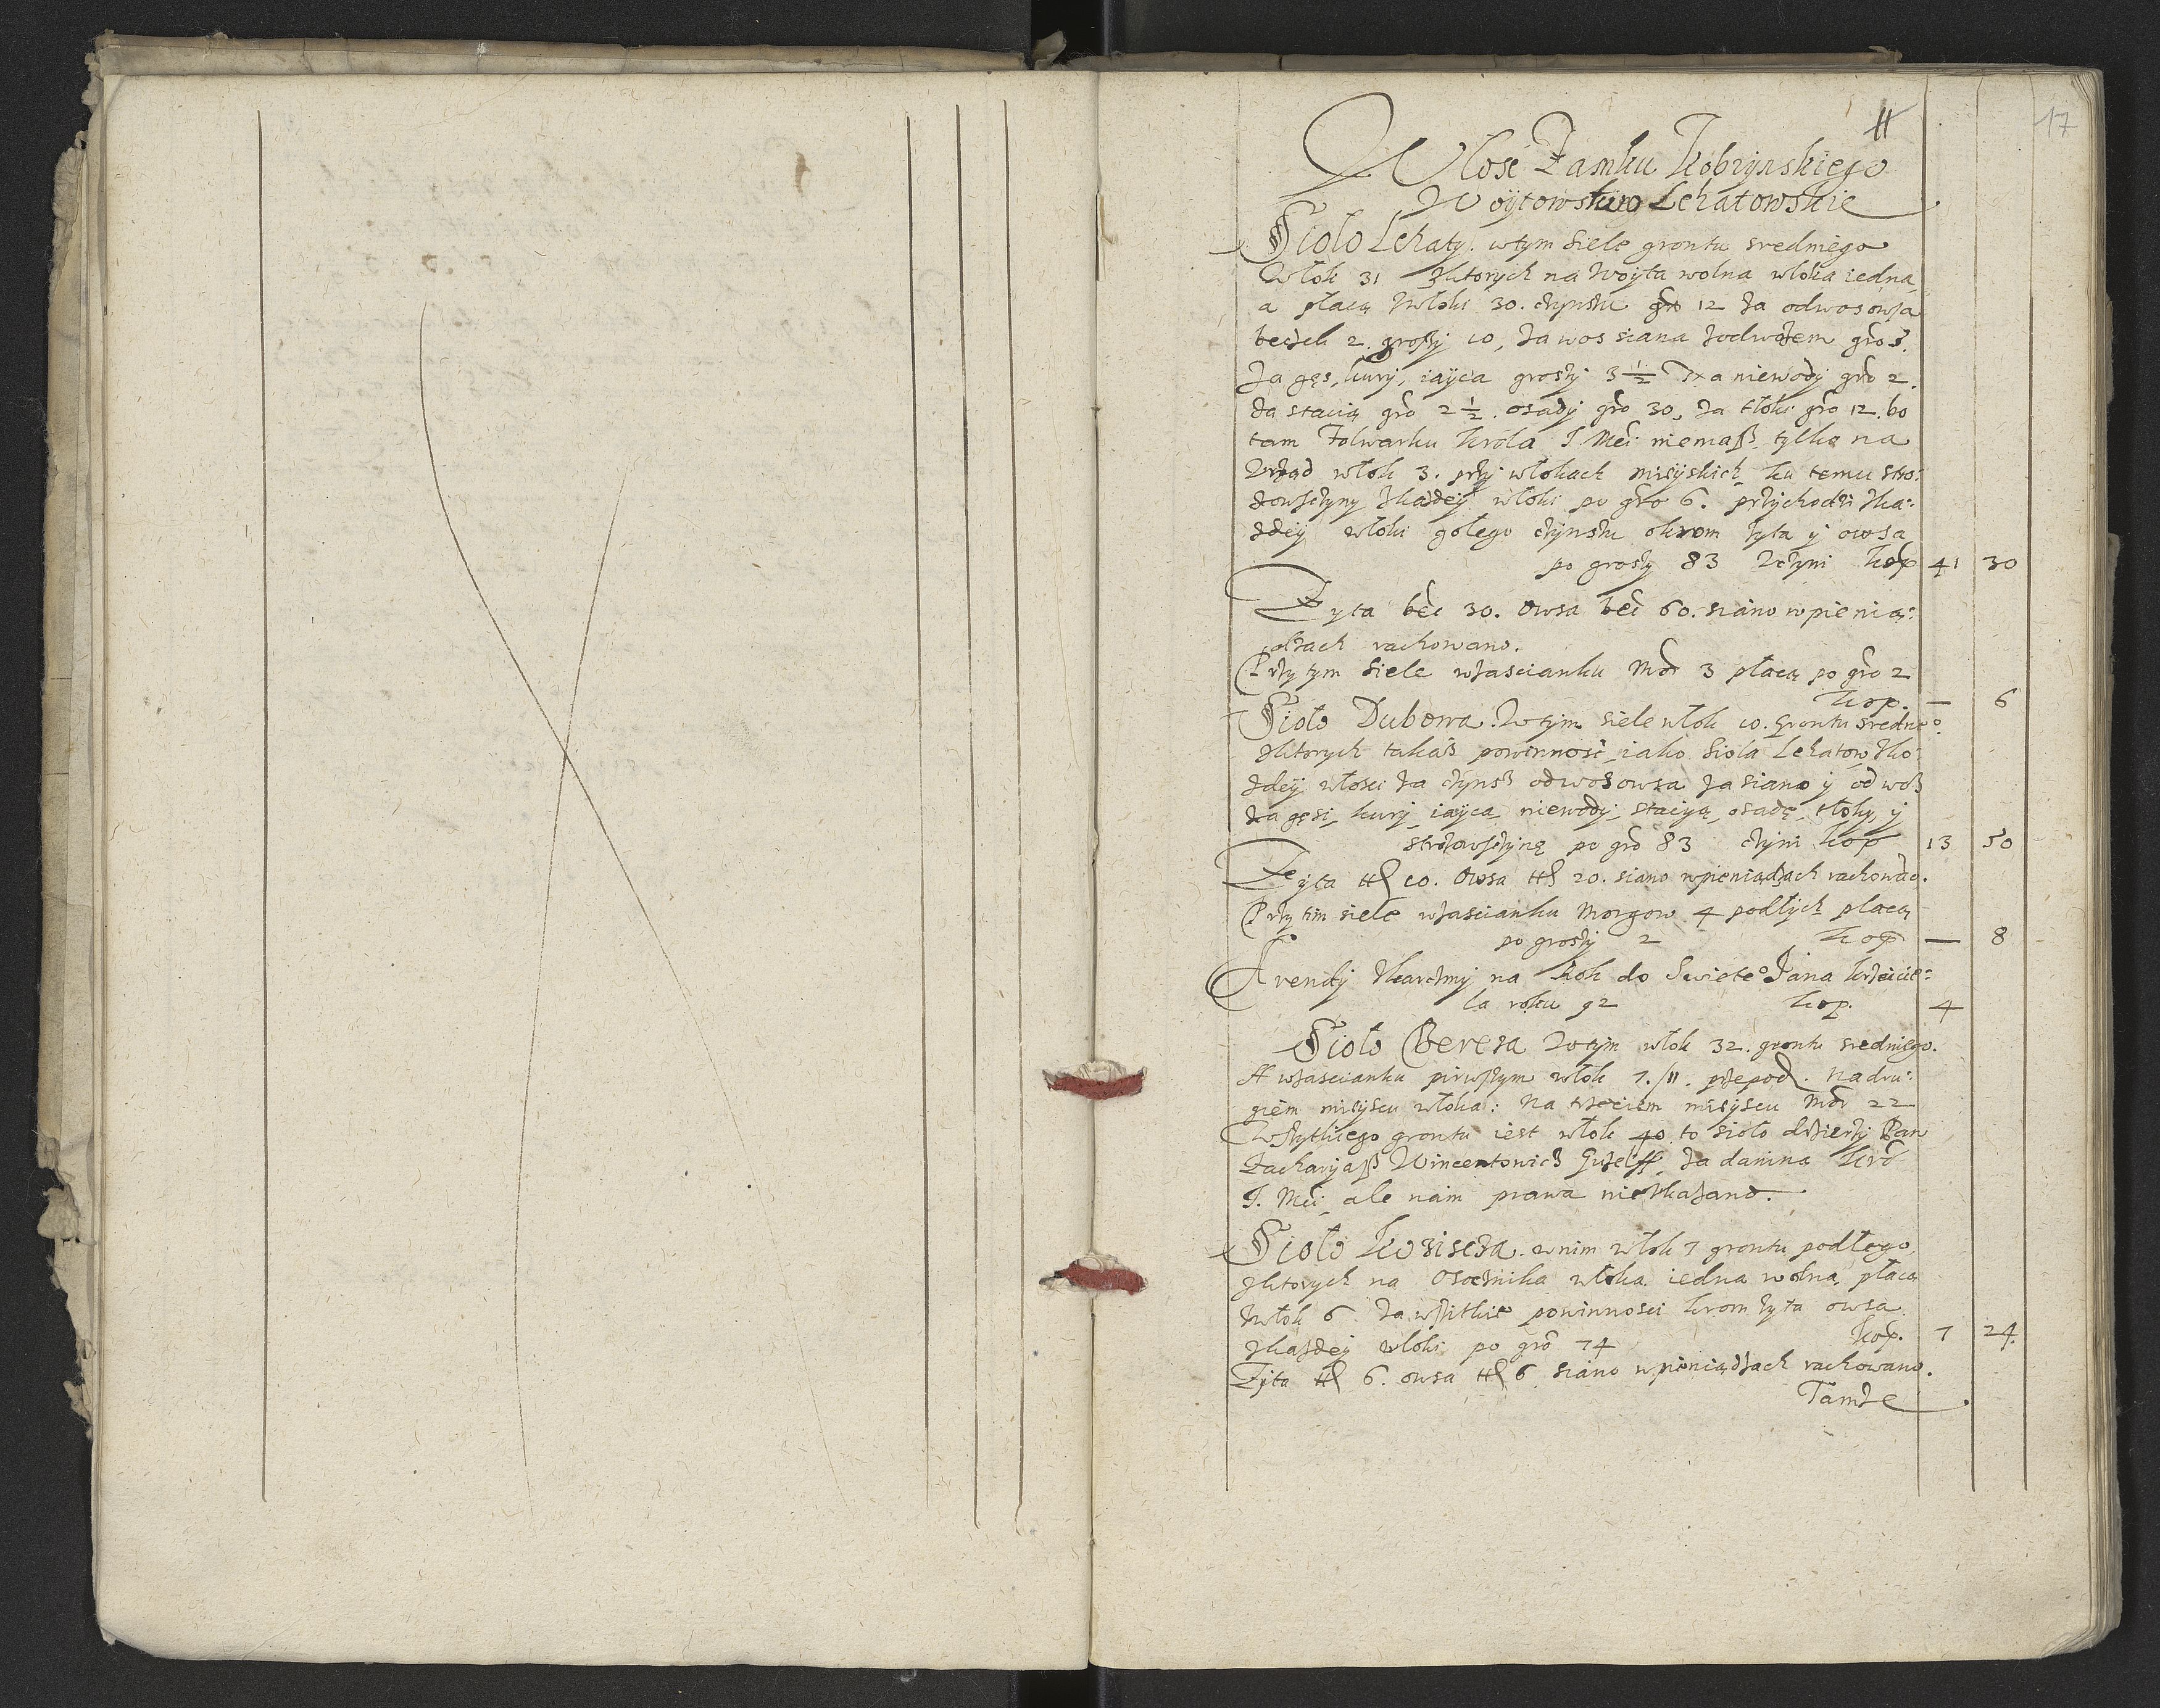 11
17
Włosć Zamku Kobrÿnskiego
Woÿtowstwo Lehatowskie
Sioło Lehaty. wtym siele grontu sredniego
Włok 31 Zktorych na Woyta wolna włoka iedna
a płacą Zwłoki 30. czynszu gro 12 za odwos owsa
beczek 2. groszÿ 10, za wos siana zodwozem gro 5.
Za gęs, kurÿ, iaÿca groszÿ 3 1/2 Za niewodÿ gro 2.
za stacią gro 2 1/2. osadÿ gro 30, za tłoki gro 12. bo
tam Folwarku Krola J Mci niemasz, tylko na
Vrząd włok 3. przÿ włokach mieÿskich, ku temu stro:
zowsczyny Zkazdeÿ włoki po gro 6. przychodzi Zka:
zdeÿ włoki gołego czÿnszu okrom zyta ÿ owsa
po groszy 83 Vczyni kop 41 30
Zyta bec 30. Owsa bec 60. siano wpienią:
dzach rachowano.
Przy tym siele wzascianku Mor 3 płacą po gro 2
kop. — 6
Sioło Dubowa. Wtÿm siele włok 10. grontu srednieº
Zktorych takasz powinnosć, iako Sioła Lehatow Zka
zdeÿ włoki za czÿnsz odwos owsa za siano ÿ odwoz
za gęsi, kurÿ, iaÿca, niewodÿ, staciÿą, osadę, tłoky, ÿ
strozowsczÿnę po gro 83 czÿni kop 13 50
Zÿta 10. Owsa 20. siano wpieniądzach rachowano.
Przy tim siele wzascianku Morgow 4 podłÿch płacą
po groszÿ 2 kop — 8
Arendÿ Zkarczmÿ na Rok do Swieteº Jana krzcicie:
la roku 92 kop. 4
Sioło Bereza Wtÿm włok 32. grontu sredniego.
A wzascianku pirwszym włok 7./11. przepod. Na dru:
giem mieÿscu włoka: Na trzeciem mieÿscu Mor 22
Wszytkiego grontu iest włok 40. to sioło dzierzÿ Pan
Zacharÿasz Wincentowicz za daniną Kro
J. Mci, ale nam prawa nieVkazano.
Sioło Kosiscza. w nim włok 7 grontu podłego,
Zktorych na Osocznika włoka iedna wolna, płacą
Zwłok 6 za wszitkie powinnosci krom zyta owsa
Zkazdeÿ włoki po gro 74 kop. 7 24.
Zÿta 6. owsa 6 siano wpieniądzach rachowano.
Tamze